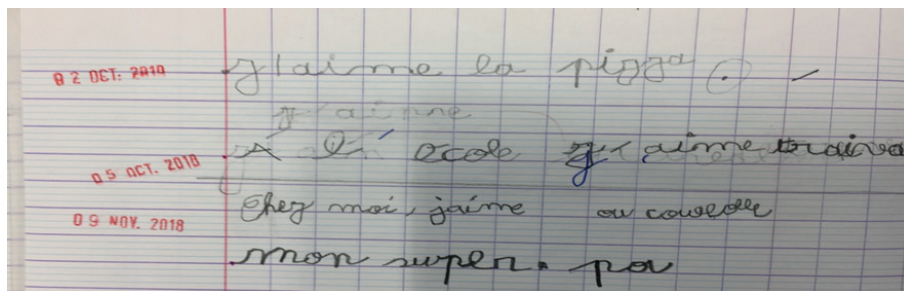 02 OCT. 2018 j'aime la pizza.
j'aime
05 OCT. 2018 A l'école j'aime
09 NOV. 2018 Chez moi, j'aime
mon super.